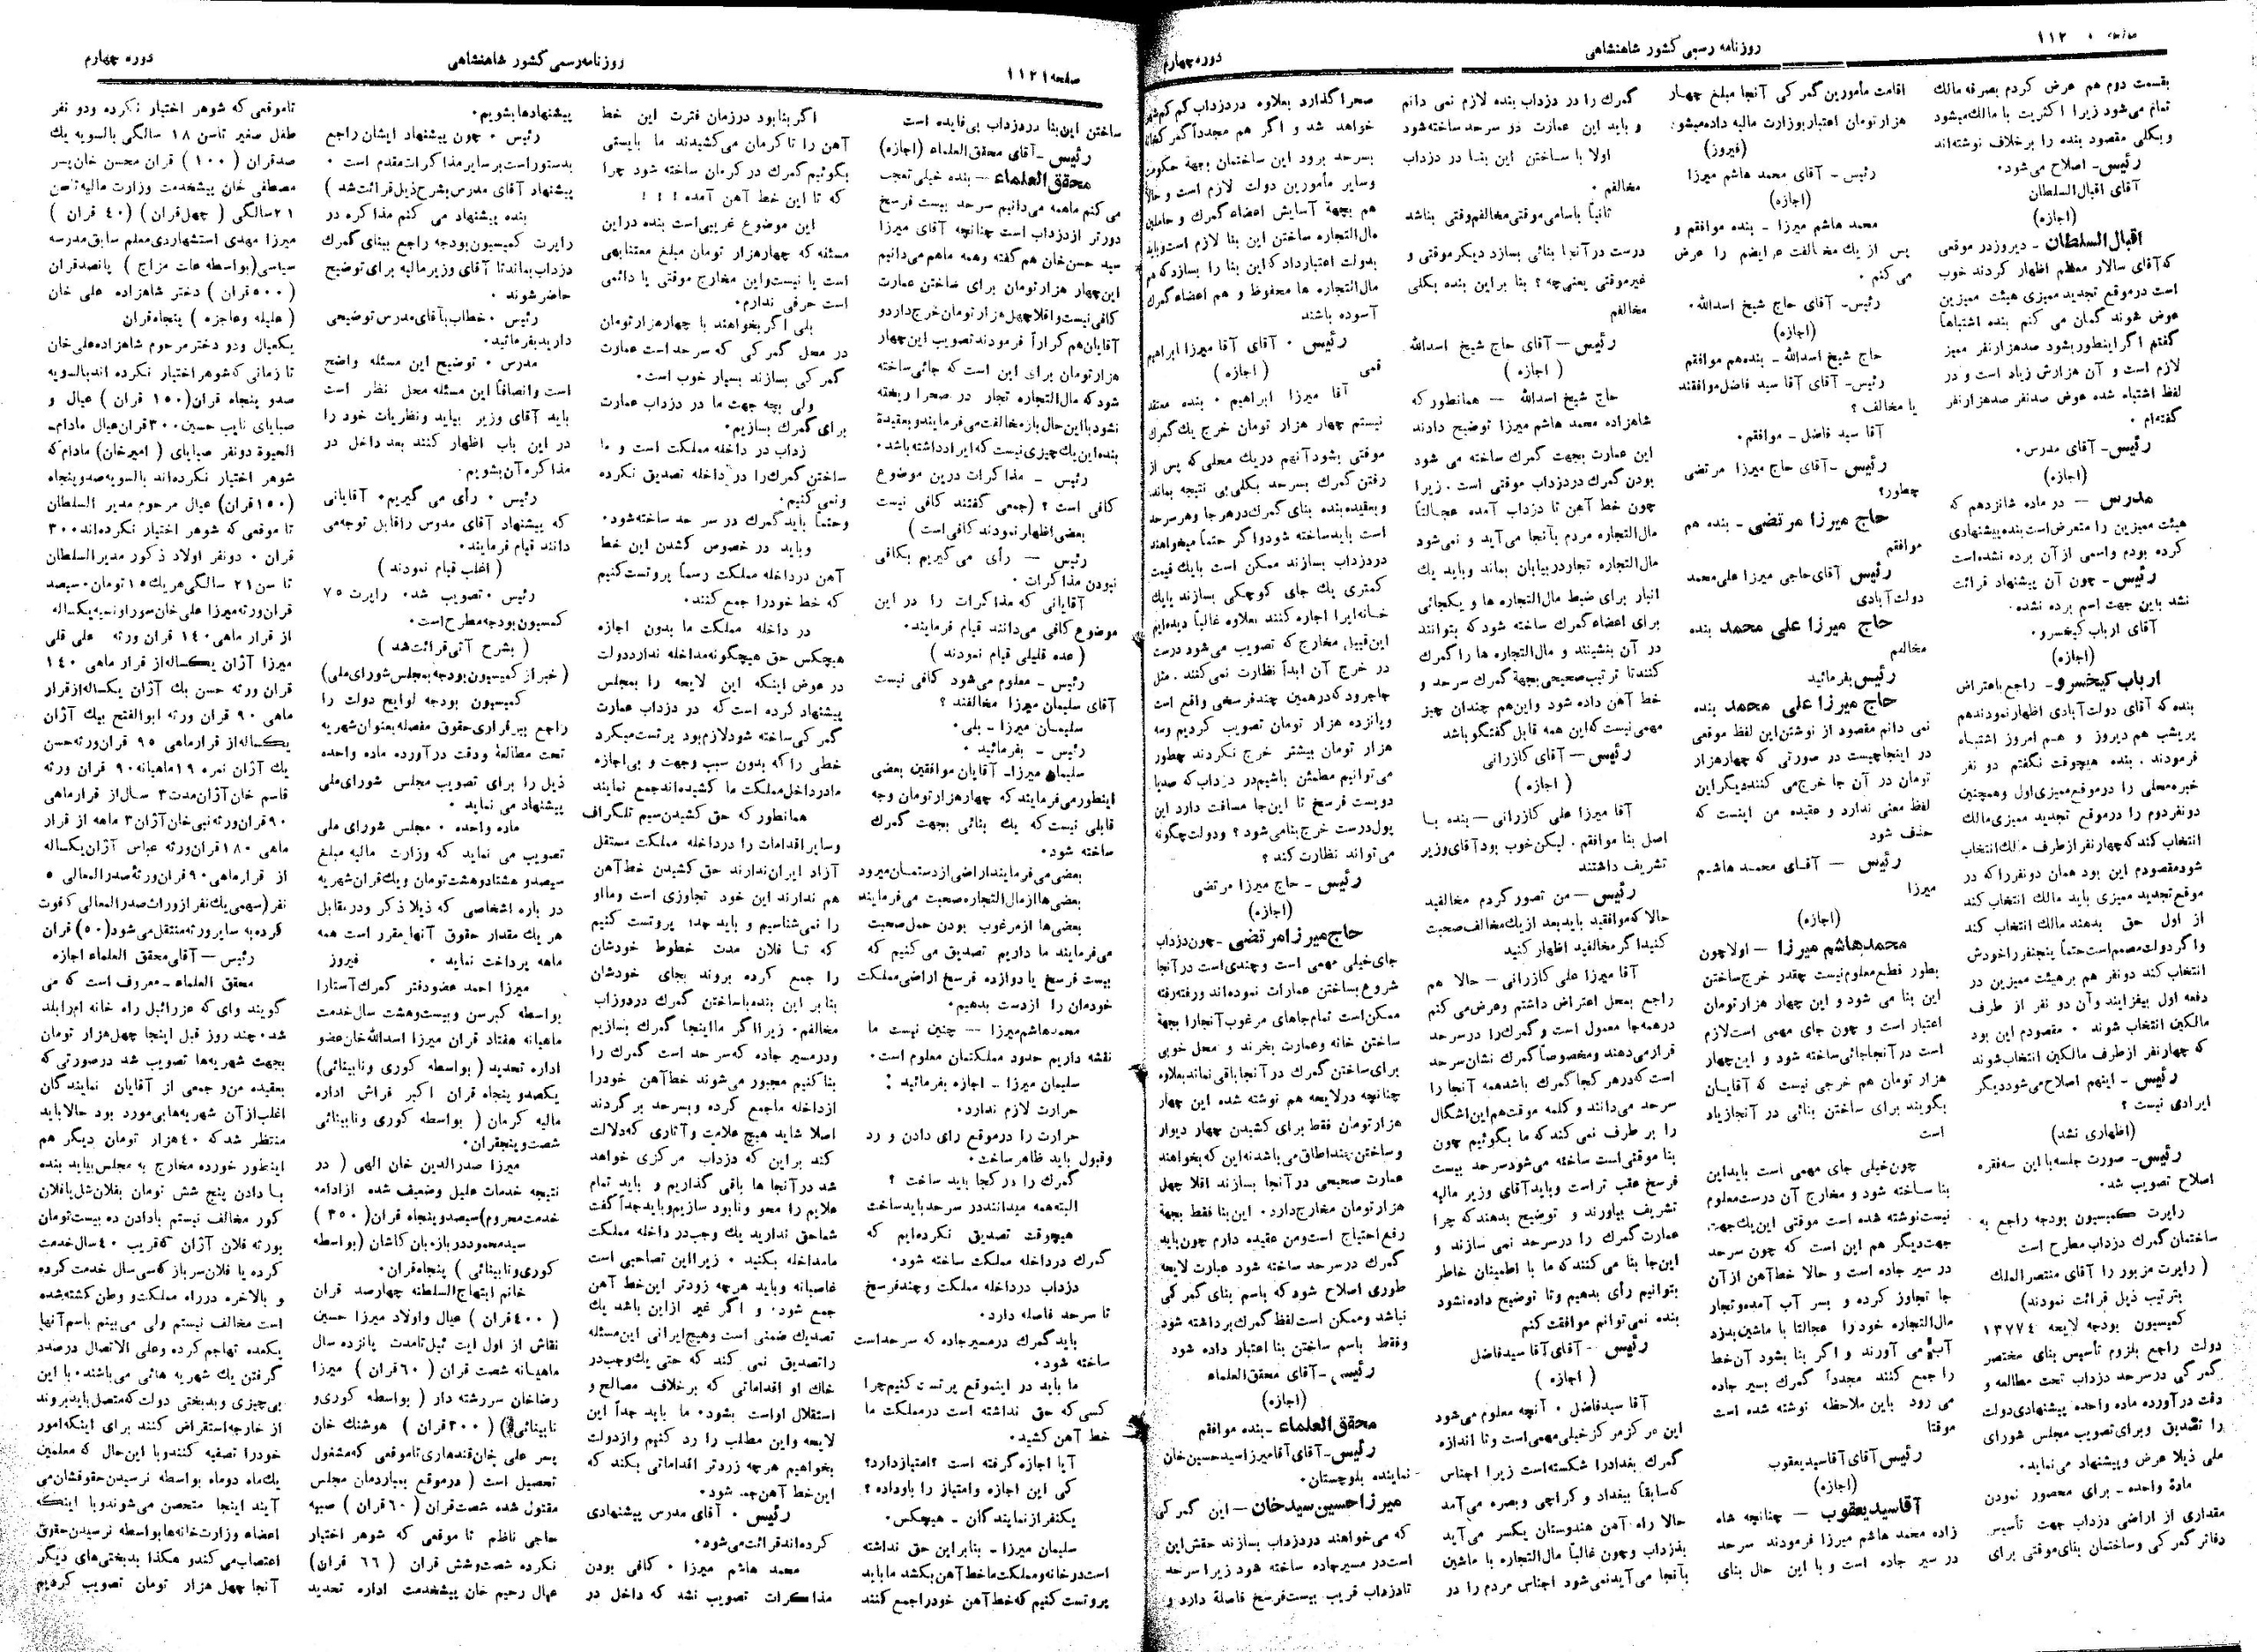 صفحه ۱۱۲۰
روزنامه رسمی کشور شاهنشاهی
دوره چهارم
بقسمت دوم هم عرض کردم بصرفه مالک
تمام می‌شود زیرا اکثریت با مالک میشود
و بکلی مقصود بنده را برخلاف نوشته‌اند
رئیس- اصلاح می‌شود.
آقای اقبال‌السلطان
(اجازه)
اقبال السلطان - دیروز در موقعی
که آقای سالار معظم اظهار کردند خوب
است در موقع تجدید ممیزی هیئت ممیزین
عوض شوند گمان می کنم بنده اشتباهاً
گفتم اگر اینطور بشود صد هزار نفر ممیز
لازم است و آن هزارش زیاد است و در
لفظ اشتباه شده عوض صد نفر صد هزار نفر
گفته‌ام .
رئیس- آقای مدرس.
(اجازه)
مدرس — در ماده شانزدهم که
هیئت ممیزین را متعرض است بنده پیشنهادی
کرده بودم و اسمی از آن برده نشده است
رئیس- چون آن پیشنهاد قرائت
نشد باین جهت اسم برده نشده.
آقای ارباب کیخسرو.
(اجازه)
ارباب کیخسرو- راجع باعتراض
بنده که آقای دولت آبادی اظهار نمودند هم
پریشب هم دیروز و هم امروز اشتباه
فرمودند . بنده هیچوقت نگفتم دو نفر
خبره محلی را در موقع ممیزی اول و همچنین
دو نفر دوم را در موقع تجدید ممیزی مالک
انتخاب کند که چهار نفر از طرف مالک انتخاب
شود مقصودم این بود همان دو نفر را که در
موقع تجدید ممیزی باید مالک انتخاب کند
از اول حق بدهند مالک انتخاب کند
و اگر دولت مصمم است حتماً پنجنفر را خودش
انتخاب کند دو نفر هم بر هیئت ممیزین در
دفعه اول بیفزایند و آن دو نفر از طرف
مالکین انتخاب شوند . مقصودم این بود
که چهار نفر از طرف مالکین انتخاب شوند
رئیس - اینهم اصلاح می‌شود دیگر
ایرادی نیست ؟
(اظهاری نشد)
رئیس- صورت جلسه با این سه فقره
اصلاح تصویب شد.
راپرت کمیسیون بودجه راجع به
ساختمان گمرک دزداب مطرح است
( راپرت مزبور را آقای منتصر الملک
بترتیب ذیل قرائت نمودند)
کمیسیون بودجه لایحه ۱۳۷۷۴
دولت راجع بلزوم تأسیس بنای مختصر
گمرکی در سرحد دزداب تحت مطالعه و
دقت در آورده ماده واحده پیشنهادی دولت
را تصدیق و برای تصویب مجلس شورای
ملی ذیلا عرض و پیشنهاد می‌نماید.
مادۀ واحده - برای محصور نمودن
مقداری از اراضی دزداب جهت تأسیس
دفاتر گمرکی و ساختمان بنای موقتی برای
اقامت مأمورین گمرکی آنجا مبلغ چهار
هزار تومان اعتبار بوزارت مالیه داده میشود.
(فیروز)
رئیس - آقای محمد هاشم میرزا
(اجازه)
محمد هاشم میرزا - بنده موافقم و
پس از یک مخالفت عرایضم را عرض
می کنم .
رئیس- آقای حاج شیخ اسدالله.
(اجازه)
حاج شیخ اسدالله - بنده هم موافقم
رئیس- آقای آقا سید فاضل موافقند
یا مخالف ؟
آقا سید فاضل - موافقم.
رئیس -آقای حاج میرزا مرتضی
چطور؟
حاج میرزا مرتضی - بنده هم
موافقم
رئیس آقای حاجی میرزا علی‌محمد
دولت آبادی
حاج میرزا علی محمد بنده
مخالفم
رئیس بفرمائید
حاج میرزا علی محمد بنده
نمی دانم مقصود از نوشتن این لفظ موقعی
در اینجا چیست در صورتی که چهار هزار
تومان در آن جا خرج می کنند دیگر این
لفظ معنی ندارد و عقیده من اینست که
حذف شود
رئیس — آقای محمد هاشم
میرزا
(اجازه)
محمدهاشم میرزا — اولا چون
بطور قطع معلوم نیست چقدر خرج ساختن
این بنا می شود و این چهار هزار تومان
اعتبار است و چون جای مهمی است لازم
است در آنجا جائی ساخته شود و این چهار
هزار تومان هم خرجی نیست که آقایان
بگویند برای ساختن بنائی در آنجا زیاد
است
چون خیلی جای مهمی است باید این
بنا ساخته شود و مخارج آن درست معلوم
نیست نوشته شده است موقتی این یک جهت.
جهت دیگر هم این است که چون سرحد
در سیر جاده است و حالا خط آهن از آن
جا تجاوز کرده و بسر آب آمده و تجار
مال‌التجاره خود را عجالتا با ماشین بدزد
آب می آورند و اگر بنا بشود آن خط
را جمع کنند مجدداً گمرک بسیر جاده
می رود باین ملاحظه نوشته شده است
موقتا
رئیس آقای آقا سید یعقوب
(اجازه)
آقا سید یعقوب — چنانچه شاه
زاده محمد هاشم میرزا فرمودند سرحد
در سیر جاده است و با این حال بنای
گمرک را در دزداب بنده لازم نمی دانم
و باید این عمارت در سرحد ساخته شود
اولا با ساختن این بنا در دزداب
مخالفم .
ثانیاً با سامی موقتی مخالفم وقتی بنا شد
درست در آنجا بنائی بسازد دیگر موقتی و
غیر موقتی یعنی‌چه ؟ بنا بر این بنده بکلی
مخالفم
رئیس — آقای حاج شیخ اسدالله
( اجازه )
حاج شیخ اسدالله — همانطور که
شاهزاده محمد هاشم میرزا توضیح دادند
این عمارت بجهت گمرک ساخته می شود
بودن گمرک در دزداب موقتی است . زیرا
چون خط آهن تا دزداب آمده عجالتاً
مال‌التجاره مردم بآنجا می‌آید و نمی‌شود
مال‌التجاره تجار در بیابان بماند و باید یک
انبار برای ضبط مال‌التجاره ها و یکجائی
برای اعضاء گمرک ساخته شود که بتوانند
در آن بنشینند و مال‌التجاره ها را گمرک
کنند تا ترتیب صحیحی بجهة گمرک سرحد و
خط آهن داده شود و این هم چندان چیز
مهمی نیست که این همه قابل گفتگو باشد
رئیس — آقای کازرانی
( اجازه )
آقا میرزا علی کازرانی — بنده با
اصل بنا موافقم . لیکن خوب بود آقای وزیر
تشریف داشتند
رئیس — من تصور کردم مخالفید
حالا که موافقید باید بعد از یک مخالف صحبت
کنید اگر مخالفید اظهار کنید
آقا میرزا علی کازرانی — حالا هم
راجع بمحل اعتراض داشتم و عرض می کنم
در همه جا معمول است و گمرک را در سرحد
قرار می‌دهند و مخصوصاً گمرک نشان سرحد
است که در هر کجا گمرک باشد همه آنجا را
سرحد می‌دانند و کلمه موقت هم این اشکال
را بر طرف نمی کند که ما بگوئیم چون
بنا موقتی است ساخته می‌شود سرحد بیست
فرسخ عقب تر است و باید آقای وزیر مالیه
تشریف بیاورند و توضیح بدهند که چرا
عمارت گمرک را در سرحد نمی سازند و
این جا بنا می کنند که ما با اطمینان خاطر
بتوانیم رأی بدهیم و تا توضیح داده نشود
بنده نمی توانم موافقت کنم
رئیس — آقای آقا سید فاضل
( اجازه )
آقا سید فاضل . آنچه معلوم می‌شود
این در کز مرکز خیلی مهمی است و تا اندازه
گمرک بغداد را شکسته است زیرا اجناس
که سابقاً ببغداد و کراچی و بصره می‌آمد
حالا راه آهن هندوستان یکسر می‌آید
بدزداب و چون غالباً مال‌التجاره با ماشین
بآنجا می‌آید نمی‌شود اجناس مردم را در
صحرا گذارد بعلاوه در دزداب کم کم شهر
خواهد شد و اگر هم مجدداً گمرکخانه
بسرحد برود این ساختمان بجهة حکومت
و سایر مأمورین دولت لازم است و حالا
هم بجهة آسایش اعضاء گمرک و حاملین
مال‌التجاره ساختن این بنا لازم است و باید
بدولت اعتبار داد که این بنا را بسازد که هم
مال‌التجاره ها محفوظ و هم اعضاء گمرک
آسوده باشند
رئیس . آقای آقا میرزا ابراهیم
قمی ( اجازه )
آقا میرزا ابراهیم . بنده معتقد
نیستم چهار هزار تومان خرج یک گمرک
موقتی بشود آنهم در یک محلی که پس از
رفتن گمرک بسرحد بکلی بی نتیجه بماند.
و بعقیده بنده بنای گمرک در هر جا و هر سرحد
است باید ساخته شود و اگر حتماً میخواهند
در دزداب بسازند ممکن است با یک قیمت
کمتری یک جای کوچکی بسازند یا یک
خانه‌ایرا اجاره کنند بعلاوه غالباً دیده‌ایم
این قبیل مخارج که تصویب می شود درست
در خرج آن ابداً نظارت نمی کنند . مثل
جاجرود که در همین چند فرسخی واقع است
و پانزده هزار تومان تصویب کردیم و سه
هزار تومان بیشتر خرج نکردند چطور
می‌توانیم مطمئن باشیم در دزداب که صد یا
دویست فرسخ تا این جا مسافت دارد این
پول درست خرج بنا می‌شود ؟ و دولت چگونه
می تواند نظارت کند ؟
رئیس - حاج میرزا مرتضی
(اجازه)
حاج میرزا مرتضی - چون دزداب
جای خیلی مهمی است و چندی است در آنجا
شروع بساختن عمارات نموده‌اند و رفته رفته
ممکن است تمام جاهای مرغوب آنجا را بجهة
ساختن خانه و عمارت بخرند و محل خوبی
برای ساختن گمرک در آنجا باقی نماند بعلاوه
چنانچه در لایحه هم نوشته شده این چهار
هزار تومان فقط برای کشیدن چهار دیوار
و ساختن چند اطاق می باشد نه این که بخواهند
عمارت صحیحی در آنجا بسازند اقلا چهل
هزار تومان مخارج دارد. این بنا فقط بجهة
رفع احتیاج است و من عقیده دارم چون باید
گمرک در سرحد ساخته شود عبارت لایحه
طوری اصلاح شود که باسم بنای گمرکی
نباشد و ممکن است لفظ گمرک برداشته شود
و فقط باسم ساختن بنا اعتبار داده شود
رئیس -آقای محقق العلماء
(اجازه)
محقق العلماء -بنده موافقم
رئیس- آقای آقا میرزا سید حسین خان
نماینده بلوچستان.
میرزا حسین سید خان — این گمرکی
که می خواهند در دزداب بسازند حقش این
است در مسیر جاده ساخته شود زیرا سرحد
تا دزداب قریب بیست فرسخ فاصلۀ دارد و
صفحه ۱۱۲۱
روزنامه رسمی کشور شاهنشاهی
دوره چهارم
ساختن این بنا در دزداب بی فایده است
رئیس -آقای محقق العلماء (اجازه)
محقق العلماء — بنده خیلی تعجب
می کنم ماهمه می‌دانیم سرحد بیست فرسخ
دورتر از دزداب است چنانچه آقای میرزا
سید حسن خان هم گفته و همه ما هم می‌دانیم
این چهار هزار تومان برای ساختن عمارت
کافی نیست و اقلا چهل هزار تومان خرج دارد و
آقایان هم کراراً فرمودند تصویب این چهار
هزار تومان برای این است که جائی ساخته
شود که مال‌التجاره تجار در صحرا ریخته
نشود با این حال باز مخالفت می فرمایند و بعقیدۀ
بنده این یک چیزی نیست که ایراد داشته باشد.
رئیس - مذاکرات درین موضوع
کافی است ؟ (جمعی گفتند کافی نیست
بعضی اظهار نمودند کافی است )
رئیس — رأی می گیریم بکافی
نبودن مذاکرات .
آقایانی که مذاکرات را در این
موضوع کافی می‌دانند قیام فرمایند.
( عده قلیلی قیام نمودند )
رئیس - معلوم می‌شود کافی نیست
آقای سلیمان میرزا مخالفند ؟
سلیمان میرزا - بلی.
رئیس - بفرمائید .
سلیمان میرزا- آقایان موافقین بعضی
اینطور می‌فرمایند که چهار هزار تومان وجه
قابلی نیست که یک بنائی بجهت گمرک
ساخته شود.
بعضی می فرمایند اراضی از دستمان میرود
بعضی ها از مال‌التجاره صحبت می فرمایند
بعضی ها از مرغوب بودن حمل صحبت
می‌فرمایند ما داریم تصدیق می کنیم که
بیست فرسخ یا دوازده فرسخ اراضی مملکت
خودمان را از دست بدهیم.
محمد هاشم میرزا -- چنین نیست ما
نقشه داریم حدود مملکتمان معلوم است.
سلیمان میرزا - اجازه بفرمائید :
حرارت لازم ندارد.
حرارت را در موقع رای دادن و رد
و قبول باید ظاهر ساخت.
گمرک را در کجا باید ساخت ؟
البته همه میدانند در سرحد باید ساخت
هیچوقت تصدیق نکرده‌ایم که
گمرک در داخله مملکت ساخته شود.
دزداب در داخله مملکت و چند فرسخ
تا سرحد فاصله دارد.
باید گمرک در مسیر جاده که سرحد است
ساخته شود.
ما باید در اینموقع پرتست کنیم چرا
کسی که حق نداشته است در مملکت ما
خط آهن کشید.
آیا اجازه گرفته است ؟ امتیاز دارد؟
کی این اجازه و امتیاز را باو داده ؟
یکنفر از نمایندگان - هیچکس.
سلیمان میرزا - بنابراین حق نداشته
است در خانه و مملکت ما خط آهن بکشد ما باید
پرتست کنیم که خط آهن خود را جمع کنند
اگر بنا بود در زمان فترت این خط
آهن را تا کرمان می کشیدند ما بایستی
بگوئیم گمرک در کرمان ساخته شود چرا
که تا این خط آهن آمده ! ! !
این موضوع غریبی است بنده در این
مسئله که چهار هزار تومان مبلغ معتنابهی
است یا نیست و این مخارج موقتی یا دائمی
است حرفی ندارم.
بلی اگر بخواهند با چهار هزار تومان
در محل گمرکی که سرحد است عمارت
گمرکی بسازند بسیار خوب است.
ولی بچه جهت ما در دزداب عمارت
برای گمرک بسازیم.
زداب در داخله مملکت است و ما
ساختن گمرک را در داخله تصدیق نکرده
و نمی کنیم.
و حتماً باید گمرک در سر حد ساخته شود.
و باید در خصوص کشدن این خط
آهن در داخله مملکت رسماً پروتست کنیم
که خط خود را جمع کنند.
در داخله مملکت ما بدون اجازه
هیچکس حق هیچگونه مداخله ندارد دولت
در عوض اینکه این لایحه را بمجلس
پیشنهاد کرده است که در دزداب عمارت
گمرکی ساخته شود لازم بود پرتست میکرد
خطی را که بدون سبب و جهت و بی اجازه
ما در داخل مملکت ما کشیده‌اند جمع نمایند
همانطور که حق کشیدن سیم تلگراف
و سایر اقدامات را در داخله مملکت مستقل
آزاد ایران ندارند حق کشیدن خط آهن
هم ندارند این خود تجاوزی است و ما او
را نمی‌شناسیم و باید جداً پروتست کنیم
که تا فلان مدت خطوط خودشان
را جمع کرده بروند بجای خودشان
بنا بر این بنده با ساختن گمرک در دوزاب
مخالفم. زیرا اگر ما اینجا گمرک بسازیم
و در مسیر جاده که سرحد است گمرک را
بنا کنیم مجبور می‌شوند خط آهن خود را
از داخله ما جمع کرده و بسرحد بر گردند
اصلا شاید هیچ علامت و آثاری که دلالت
کند بر این که دزداب مرکزی خواهد
شد در آنجا ها باقی گذاریم و باید تمام
علایم را محو و نابود سازیم و باید جداً گفت
شما حق ندارید یک وجب در داخله مملکت
ما مداخله بکنید . زیرا این تصاحبی است
غاصبانه و باید هرچه زودتر این خط آهن
جمع شود. و اگر غیر از این باشد یک
تصدیق ضمنی است و هیچ ایرانی این مسئله
را تصدیق نمی کند که حتی یک وجب در
خاک او اقداماتی که بر خلاف مصالح و
استقلال او است بشود. ما باید جداً این
لایحه و این مطلب را رد کنیم و از دولت
بخواهیم هرچه زردتر اقداماتی بکند که
این خط آهن جمع شود.
رئیس . آقای مدرس پیشنهادی
کرده‌اند قرائت می‌شود.
محمد هاشم میرزا . کافی بودن
مذاکرات تصویب نشد که داخل در
پیشنهادها بشویم.
رئیس . چون پیشنهاد ایشان راجع
بدستور است بر سایر مذاکرات مقدم است .
پیشنهاد آقای مدرس بشرح ذیل قرائت شد )
بنده پیشنهاد می کنم مذاکره در
راپرت کمیسیون بودجه راجع ببنای گمرک
دزداب بماند تا آقای وزیر مالیه برای توضیح
حاضر شوند .
رئیس . خطاب بآقای مدرس توضیحی
دارید بفرمائید.
مدرس . توضیح این مسئله واضح
است و انصافاً این مسئله محل نظر است
باید آقای وزیر بیاید و نظریات خود را
در این باب اظهار کنند بعد داخل در
مذاکره آن بشویم.
رئیس . رأی می گیریم. آقایانی
که پیشنهاد آقای مدرس را قابل توجه می
دانند قیام فرمایند.
( اغلب قیام نمودند )
رئیس . تصویب شد. راپرت ۷۵
کمسیون بودجه مطرح است.
( بشرح آتی قرائت شد )
( خبر از کمیسیون بودجه بمجلس شورای ملی)
کمیسیون بودجه لوایح دولت را
راجع ببرقراری حقوق مفصله بعنوان شهریه
تحت مطالعه و دقت در آورده ماده واحده
ذیل را برای تصویب مجلس شورای ملی
پیشنهاد می نماید .
ماده واحده . مجلس شورای ملی
تصویب می نماید که وزارت مالیه مبلغ
سیصد و هشتاد و هشت تومان و یک قران شهریه
در باره اشخاصی که ذیلا ذکر و در مقابل
هر یک مقدار حقوق آنها مقرر است همه
ماهه پرداخت نماید . فیروز
میرزا احمد عضو دفتر گمرک آستارا
بواسطه کبر سن و بیست و هشت سال خدمت
ماهیانه هفتاد قران میرزا اسدالله خان عضو
اداره تحدید ( بواسطه کوری و نابینائی)
یکصد و پنجاه قران اکبر فراش اداره
مالیه کرمان ( بواسطه کوری و نابینائی
شصت و پنجقران.
میرزا صدرالدین خان الهی ( در
نتیجه خدمات علیل و ضعیف شده از ادامه
خدمت محروم) سیصد و پنجاه قران( ۳۵۰ )
سید محمود دربازه بان کاشان (بواسطه
کوری و نابینائی ) پنجاه قران.
خانم ابتهاج السلطنه چهارصد قران
( ۴۰۰ قران ) عیال و اولاد میرزا حسین
نقاش از اول ایت ئیل تا مدت پانزده سال
ماهیانه شصت قران ( ۶۰ قران ) میرزا
رضاخان سررشته دار ( بواسطه کوری و
نابینائی ) ( ۳۰۰ قران ) هوشنک خان
پسر علی خان قندهاری تا موقعی که مشغول
تحصیل است ( در موقع بمباردمان مجلس
مقتول شده شصت قران ( ۶۰ قران ) صبیه
حاجی ناظم تا موقعی که شوهر اختیار
نکرده شصت و شش قران ( ۶۶ قران)
عیال رحیم خان پیشخدمت اداره تحدید
تا موقعی که شوهر اختیار نکرده و دو نفر
طفل صغیر تاسن ۱۸ سالگی بالسویه یک
صد قران ( ۱۰۰ ) قران محسن خان پسر
مصطفی خان پیشخدمت وزارت مالیه تا سن
۲۱ سالگی ( چهل قران ) (۴۰ قران )
میرزا مهدی استشهاردی معلم سابق مدرسه
سیاسی (بواسطه علت مزاج ) پانصد قران
( ۵۰۰ قران ) دختر شاهزاده علی خان
( علیله و عاجزه ) پنجاه قران
یکعیال و دو دختر مرحوم شاهزاده علی خان
تا زمانی که شوهر اختیار نکرده اند بالسویه
صد و پنجاه قران ( ۱۵۰ قران ) عیال و
صبایای نایب حسین ۳۰۰ قران عیال مادام-
الحیوة دو نفر صبایای ( امیرخان) مادام که
شوهر اختیار نکرده‌اند بالسویه صد و پنجاه
(۱۵۰ قران) عیال مرحوم مدیر السلطان
تا موقعی که شوهر اختیار نکرده‌اند ۳۰۰
قران . دو نفر اولاد ذکور مدیر السلطان
تا سن ۲۱ سالگی هر یک ۱۵ تومان. سیصد
قران ورثه میرزا علی خان سوراونسیه یکساله
از قرار ماهی ۱۴۰ قران ورثه علی قلی
میرزا آژان یکساله از قرار ماهی ۱۴۰
قران ورثه حسن بک آژان یکساله از قرار
ماهی ۹۰ قران ورثه ابوالفتح بیک آژان
یکساله از قرار ماهی ۹۵ قران ورثه حسن
یک آژان نمره ۱۹ ماهیانه ۹۰ قران ورثه
قاسم خان آژان مدت ۳ سال از قرار ماهی
۹۰ قران ورثه نبی خان آژان ۳ ماهه از قرار
ماهی ۱۸۰ قران ورثه عباس آژان یکساله
از قرار ماهی ۹۰ قران ورثۀ صدر المعالی ۵
نفر (سهمی یک نفر از وراث صدر المعالی که فوت
کرده به سایر ورثه منتقل می‌شود (۵۰) قران
رئیس — آقای محقق العلماء اجازه
محقق العلماء - معروف است که می
گویند وای که عزرائیل راه خانه ام را بلد
شد. چند روز قبل اینجا چهل هزار تومان
بجهت شهریه‌ها تصویب شد در صورتی که
بعقیده من و جمعی از آقایان نمایندگان
اغلب از آن شهریه ها بی مورد بود حالا باید
منتظر شد که ۴۰ هزار تومان دیگر هم
اینطور خورده مخارج به مجلس بیاید بنده
با دادن پنج شش تومان بفلان شل یا فلان
کور مخالف نیستم بادادن ده بیست تومان
بورثه فلان آژان که قریب ۴۰ سال خدمت
کرده یا فلان سرباز که سی سال خدمت کرده
و بالاخره در راه مملکت و وطن کشته شده
است مخالف نیستم ولی می بینم باسم آنها
یکعده تهاجم کرده و علی الاتصال در صدد
گرفتن یک شهریه هائی می باشند. با این
بی چیزی و بدبختی دولت که متصل باید بروند
از خارجه استقراض کنند برای اینکه امور
خود را تصفیه کنند و با این حال که معلمین
یک ماه دو ماه بواسطه نرسیدن حقوقشان می
آیند اینجا متحصن می شوند و با اینکه
اعضاء وزارتخانه‌ها بواسطه نرسیدن حقوق
اعتصاب می کنند و هکذا بدبختی های دیگر
آنجا چهل هزار تومان تصویب کردیم